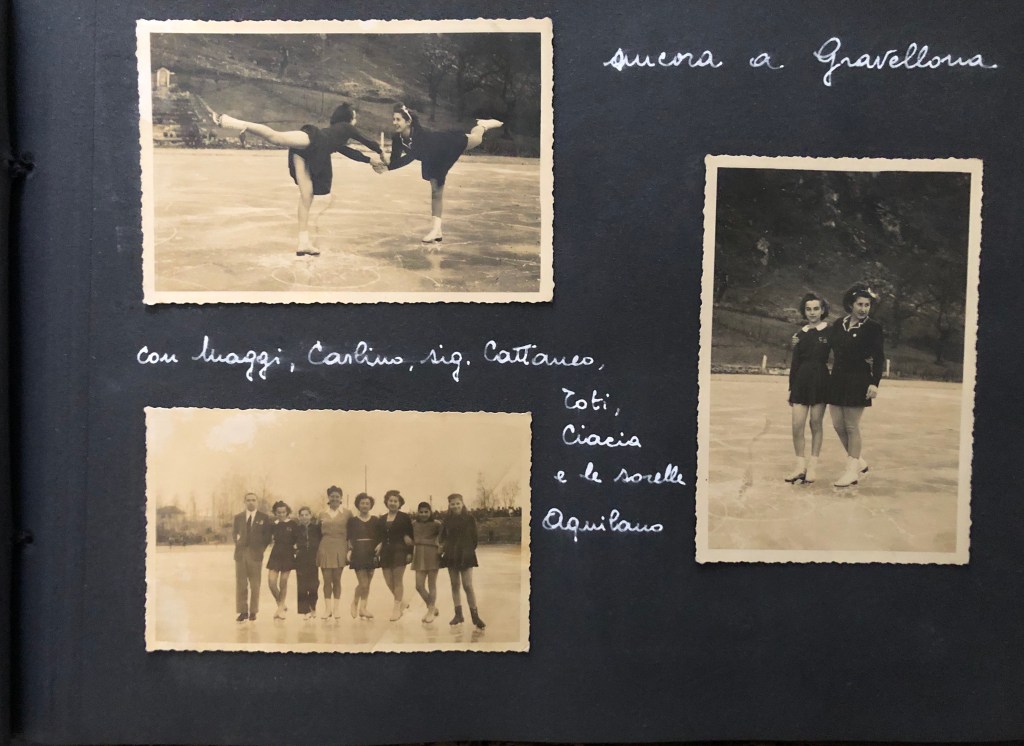 ancora a Gravellona
con Maggi, Carlino, sig. Cattaneo,
Toti,
Ciacia
e le sorelle
Aquilano